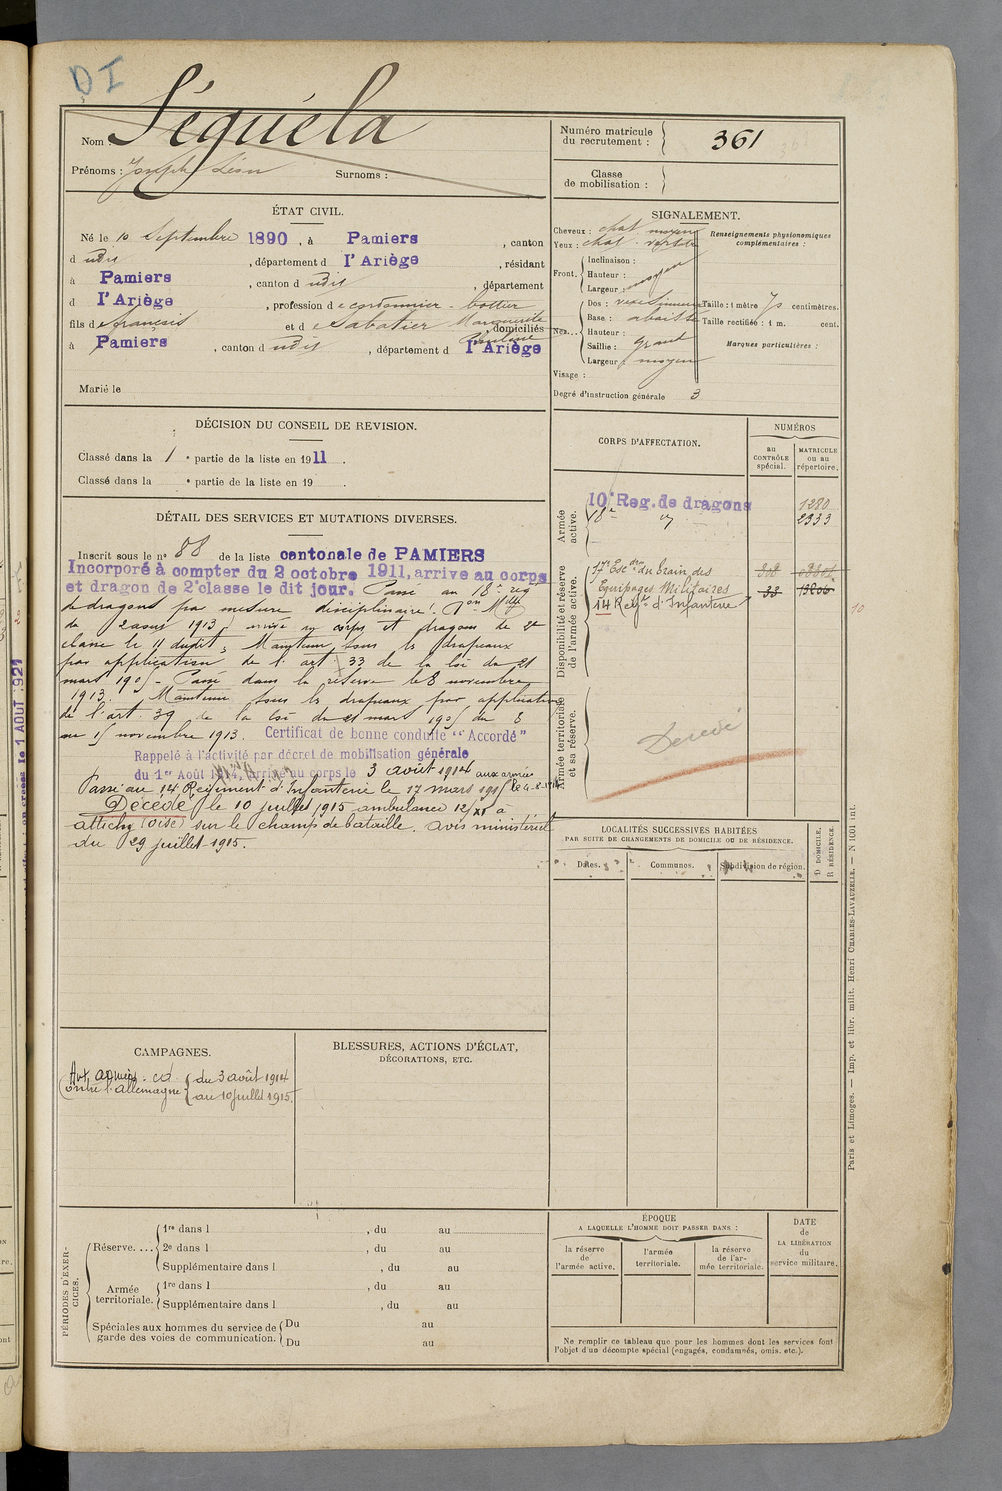 DI
Nom : Séquéla
Prénoms : Joseph Léon Surnoms :
Numéro matricule du recrutement : 361
Classe de mobilisation :
ÉTAT CIVIL.
Né le 10 Septembre 1890, à Pamiers, canton
d udit, département d l'Ariège, résidant
à Pamiers, canton d udit, département
d l'Ariège, profession de cordonnier - bottier
fils de françois et de Sabatier Marguerite Pauline domiciliés
à Pamiers, canton d udit, département d l'Ariège
Marié le
SIGNALEMENT.
Cheveux : chat moyen
Yeux : chat. verdâtre
Renseignements physionomiques complémentaires :
Front. Inclinaison :
Hauteur :
Largeur : moyen
Nez. Dos : vexe sinueux
Base : abaissée
Hauteur :
Saillie : grand
Largeur : moyen
Taille : 1 mètre 75 centimètres.
Taille rectifiée : 1 m. cent.
Marques particulières :
Visage :
Degré d'instruction générale 3
DÉCISION DU CONSEIL DE REVISION.
Classé dans la 1e partie de la liste en 1911.
Classé dans la e partie de la liste en 19 .
DÉTAIL DES SERVICES ET MUTATIONS DIVERSES.
Inscrit sous le n° 88 de la liste cantonale de PAMIERS
Incorporé à compter du 2 octobre 1911, arrive au corps
et dragon de 2e classe le dit jour. Passé au 18e rég
de dragons par mesure disciplinaire.
de 2 aout 1913 arrivé au corps et dragon de 2e
classe le 11 dudit, Maintenu sous les drapeaux
par application de l'art 33 de la loi du 21
mars 1905 - Passé dans la réserve le 8 novembre
1913. Maintenu sous les drapeaux par application
de l'art. 39 de la loi du 21 mars 1905 du 8
au 15 novembre 1913. Certificat de bonne conduite "Accordé"
Rappelé à l'activité par décret de mobilisation générale
du 1er Août 1914, arrivé au corps le 3 août 1914 aux armées
Passé au 14 Régiment d'Infanterie le 17 mars 1915
Décédé le 10 juillet 1915 ambulance 12/XI à
attichy (oise) sur le champs de bataille. avis ministériel
du 29 juillet 1915.
CORPS D'AFFECTATION.
NUMÉROS
au CONTRÔLE spécial.
MATRICULE ou au répertoire.
Armée active.
10e Reg. de dragons 1280
18e 2933
Disponibilité et réserve de l'armée active.
17e Escon du train des
Equipages Militaires
14 Regt d'Infanterie
10
Armée territoriale et sa réserve.
Decédé
LOCALITÉS SUCCESSIVES HABITÉES
PAR SUITE DE CHANGEMENTS DE DOMICILE OU DE RÉSIDENCE.
Dates. Communes. Subdivision de région. D DOMICILE. R RÉSIDENCE.
CAMPAGNES.
Contre l'allemagne du 3 août 1914
au 10 juillet 1915.
BLESSURES, ACTIONS D'ÉCLAT,
DÉCORATIONS, ETC.
PÉRIODES D'EXERCICES.
Réserve.... 1re dans l , du au
2e dans l , du au
Supplémentaire dans l , du au
Armée territoriale. 1re dans l , du au
Supplémentaire dans l , du au
Spéciales aux hommes du service de garde des voies de communication. Du au
Du au
ÉPOQUE
A LAQUELLE L'HOMME DOIT PASSER DANS :
la réserve de l'armée active.
l'armée territoriale.
la réserve de l'armée territoriale.
DATE de LA LIBÉRATION du service militaire.
Ne remplir ce tableau que pour les hommes dont les services font
l'objet d'un décompte spécial (engagés, condamnés, omis, etc.).
Paris et Limoges. — Imp. et libr. milit. Henri CHARLES-LAVAUZELLE. — N 1011 int.
le 1 AOUT 1921